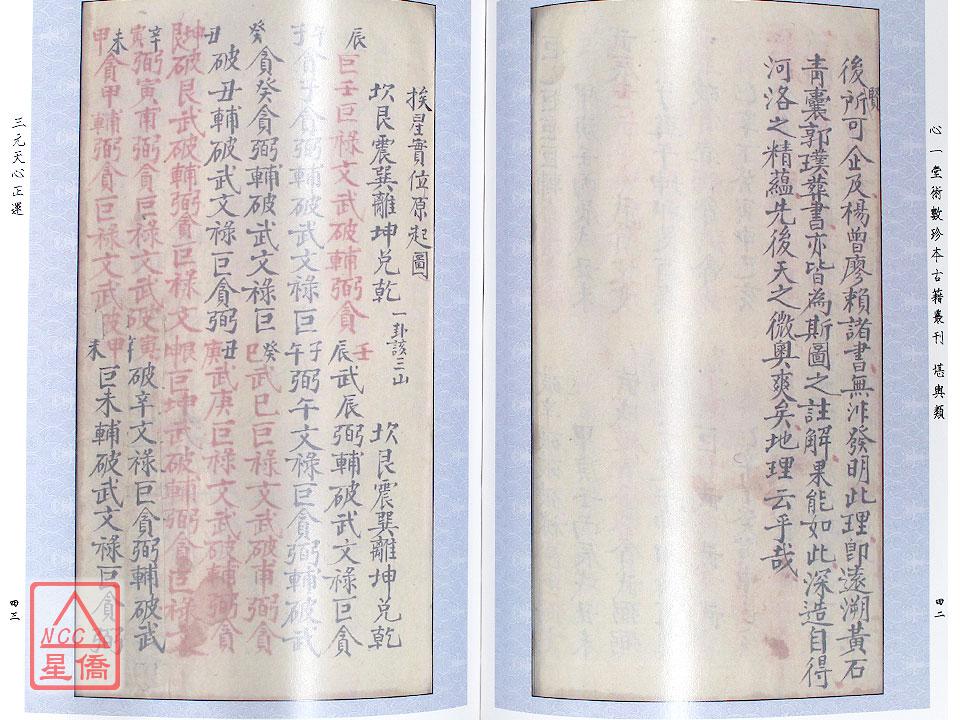 心一堂術數珍本古籍叢刊 堪輿類
四二
後賢所可企及楊曾廖賴諸書無非發明此理即遠溯黃石
青囊郭璞葬書亦皆為斯圖之註解果能如此深造自得
河洛之精蘊先後天之微奧爽矣地理云乎哉
挨星實位原起圖
坎艮震巽離坤兌乾 一卦該三山 坎艮震巽離坤兌乾
辰 巨壬巨祿文武破輔弼貪 壬 辰武辰弼輔破武文祿巨貪
貪子貪弼輔破武文祿巨 子 午弼午文祿巨貪弼輔破武
癸 貪癸貪弼輔破武文祿巨 癸 巳武巳巨祿文武破輔弼貪
丑 破丑輔破武文祿巨貪弼 丑 庚武庚巨祿文武破輔弼貪
坤 艮破艮武破輔弼貪巨祿文 艮 坤巨坤武破輔弼貪巨祿文
辛 寅弼寅輔弼貪巨祿文武破 寅 辛破辛文祿巨貪弼輔破武
未 甲貪甲輔弼貪巨祿文武破 甲 未巨未輔破武文祿巨貪弼
三元天心正運
四三
NCC
星僑